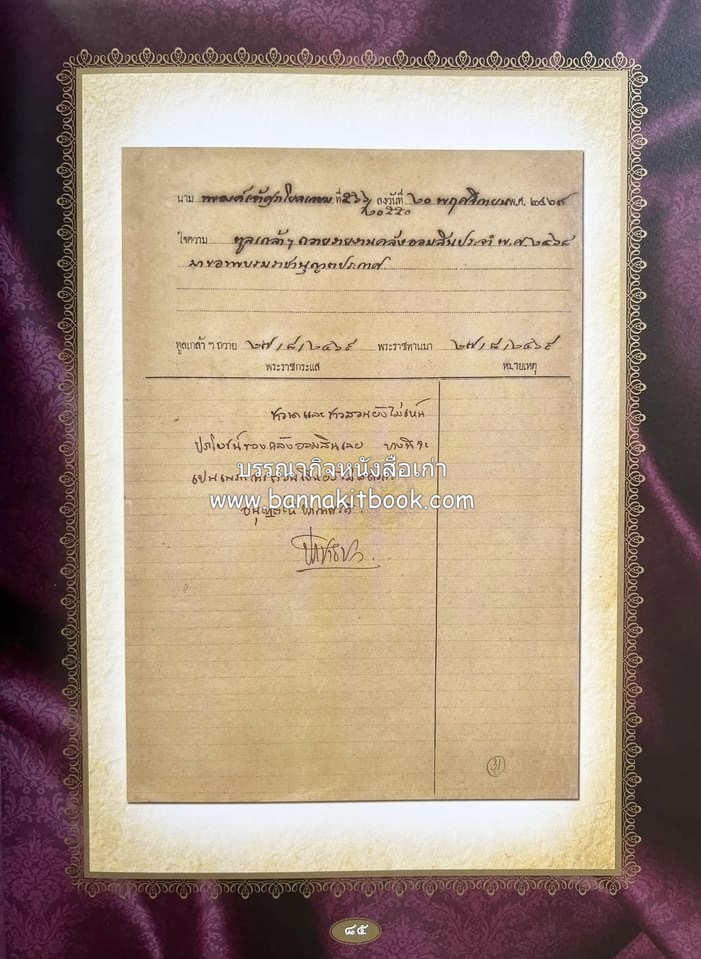 นาม พระองค์เจ้าศุภโยคเกษม ที่ ๕๖๖ ลงวันที่ ๒๐ พฤศจิกายน พ.ศ. ๒๔๖๙
๒๐๕๕๐
ใจความ ทูลเกล้าฯ ถวายรายงานคลังออมสินประจำ พ.ศ ๒๔๖๘
มาขอพระบรมราชานุญาตประกาศ
ทูลเกล้า ฯ ถวาย ๒๗/๘/๒๔๖๙ พระราชทานมา ๒๗/๘/๒๔๖๙
พระราชกระแส หมายเหตุ
ชาวนาและชาวสวนยังไม่เห็น
ประโยชน์ของคลังออมสินเลย บางทีจะ
บรรณากิจหนังสือเก่า
www.bannakitbook.com
อนุญาต
31
๘๕